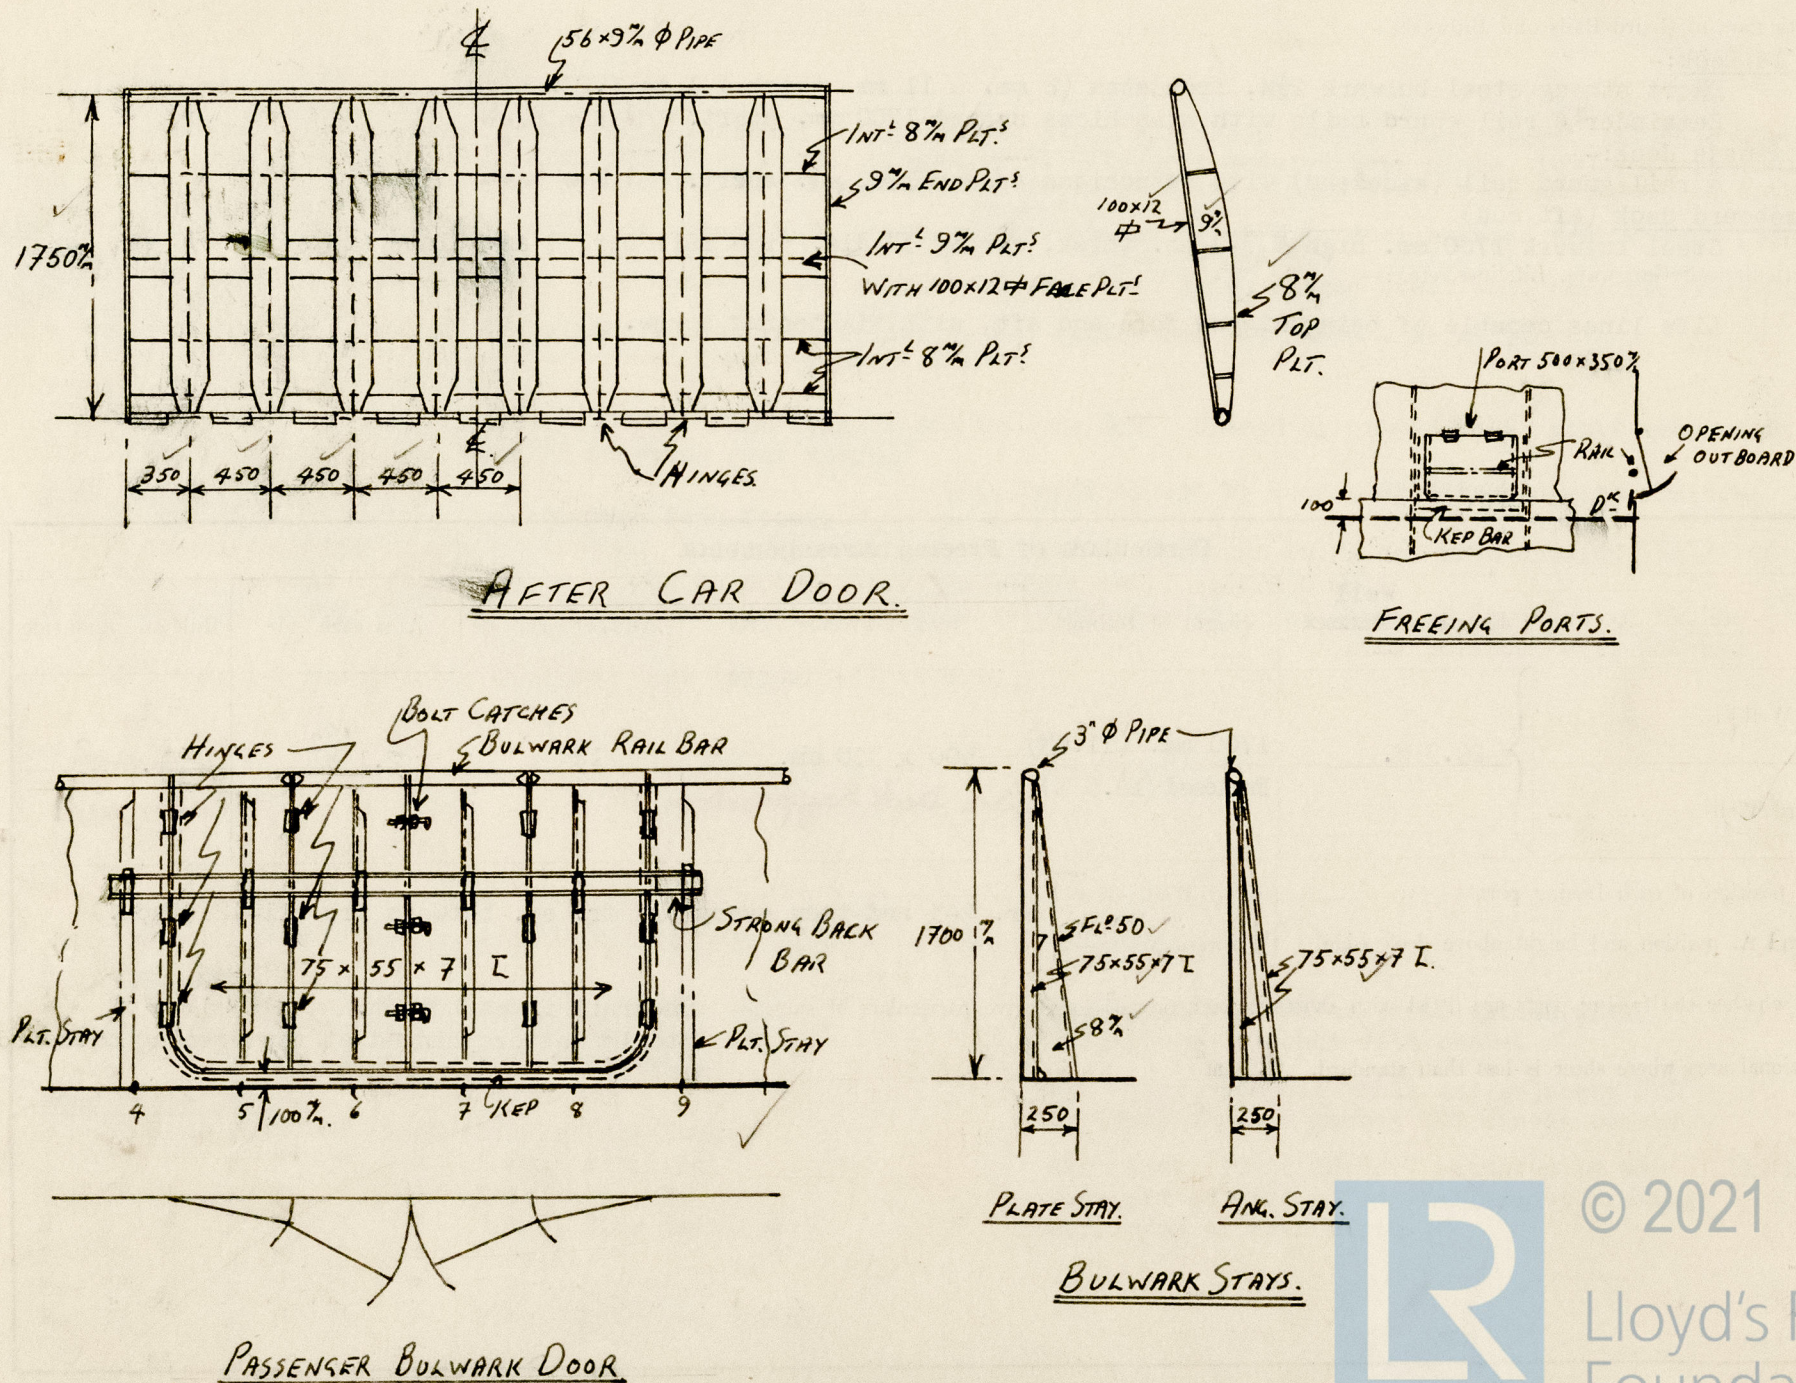 ℄
56×9 m/m ϕ PIPE
INTL 8 m/m PLTS
9 m/m END PLTS
1750 m/m
INTL 9 m/m PLTS
WITH 100×12 FACE PLTS
INTL 8 m/m PLTS
℄
350 450 450 450 450
HINGES.
AFTER CAR DOOR.
100×12
9 m/m
8 m/m
TOP
PLT.
PORT 500×350 m/m
RAIL
OPENING
OUTBOARD
100
DK
KEP BAR
FREEING PORTS.
BOLT CATCHES
HINGES
BULWARK RAIL BAR
STRONG BACK
BAR
75 × 55 × 7
PLT. STAY
PLT. STAY
4 5 6 7 8 9
100 m/m.
KEP
PASSENGER BULWARK DOOR
3" ϕ PIPE
1700 m/m
FLG 50
75×55×7
75×55×7
8 m/m
250 250
PLATE STAY.
ANG. STAY.
BULWARK STAYS.
LR
© 2021
Lloyd's
Founda